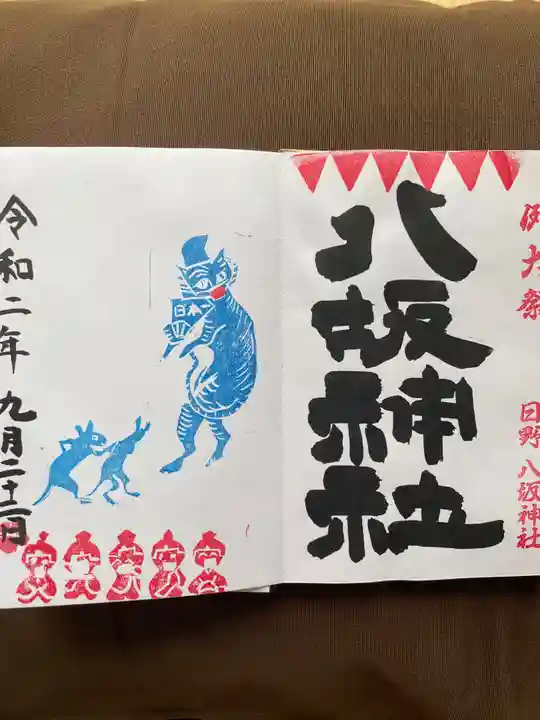 例大祭
日野 八坂神社
八坂神社
日本一
令和二年 九月二十二日